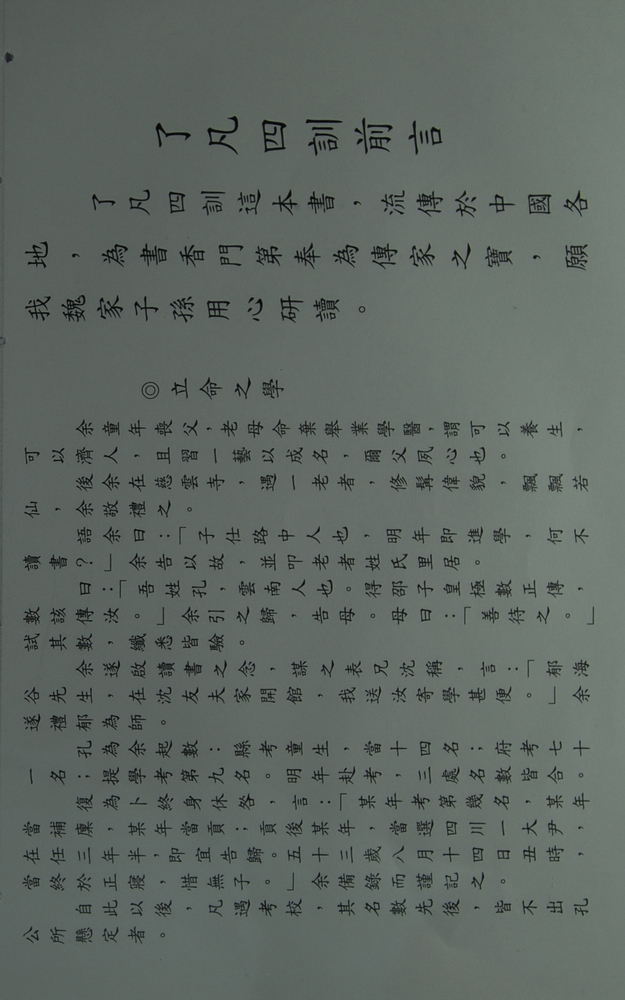 了凡四訓前言
了凡四訓這本書，流傳於中國各
地，為書香門第奉為傳家之寶，願
我魏家子孫用心研讀。
◎立命之學
余童年喪父，老母命棄舉業學醫，謂可以養生，
可以濟人，且習一藝以成名，爾父夙心也。
後余在慈雲寺，遇一老者，修髯偉貌，飄飄若
仙，余敬禮之。
語余曰：「子仕路中人也，明年即進學，何不
讀書？」余告以故，並叩老者姓氏里居。
曰：「吾姓孔，雲南人也。得邵子皇極數正傳，
數該傳汝。」余引之歸，告母。母曰：「善待之。」
試其數，纖悉皆驗。
余遂啟讀書之念，謀之表兄沈稱，言：「郁海
谷先生，在沈友夫家開館，我送汝寄學甚便。」余
遂禮郁為師。
孔為余起數：縣考童生，當十四名；府考七十
一名；提學考第九名。明年赴考，三處名數皆合。
復為卜終身休咎，言：「某年考第幾名，某年
當補廩，某年當貢；貢後某年，當選四川一大尹，
在任三年半，即宜告歸。五十三歲八月十四日丑時，
當終於正寢，惜無子。」余備錄而謹記之。
自此以後，凡遇考校，其名數先後，皆不出孔
公所懸定者。